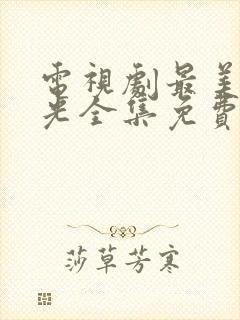 電視劇最美
光全集免費
莎草芳寒